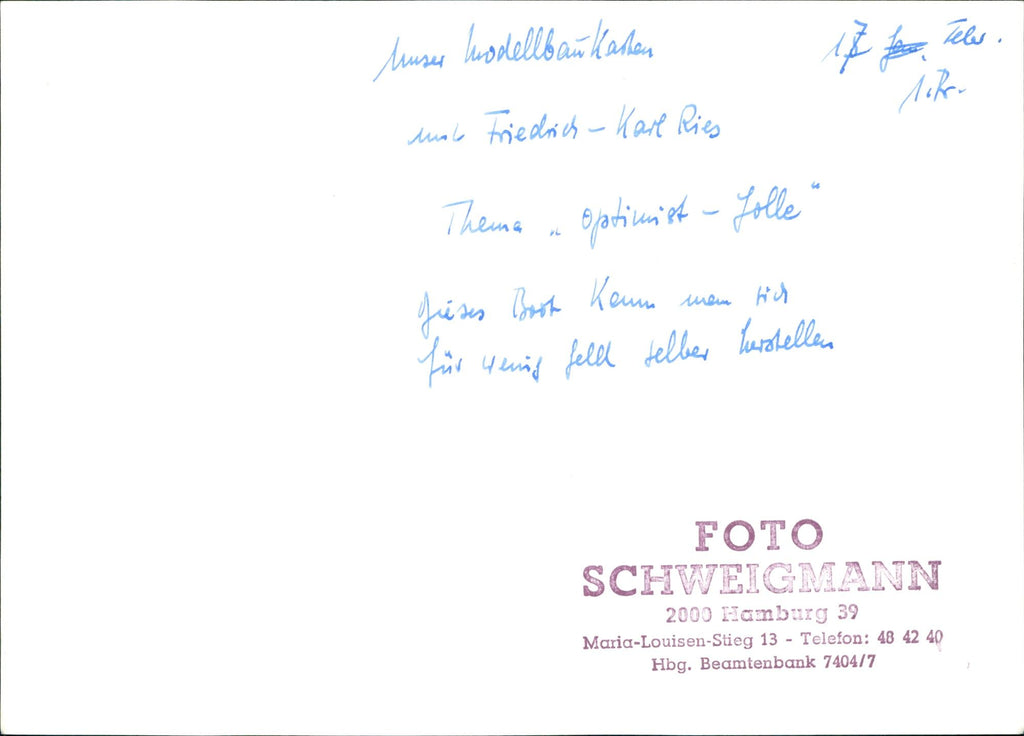 Unser Modellbaukasten
17. Jan. Febr.
1. Pr.
mit Friedrich - Karl Ries
Thema „Optimist - Jolle“
Dieses Boot kann man sich
für wenig Geld selber herstellen
FOTO
SCHWEIGMANN
2000 Hamburg 39
Maria-Louisen-Stieg 13 - Telefon: 48 42 40
Hbg. Beamtenbank 7404/7